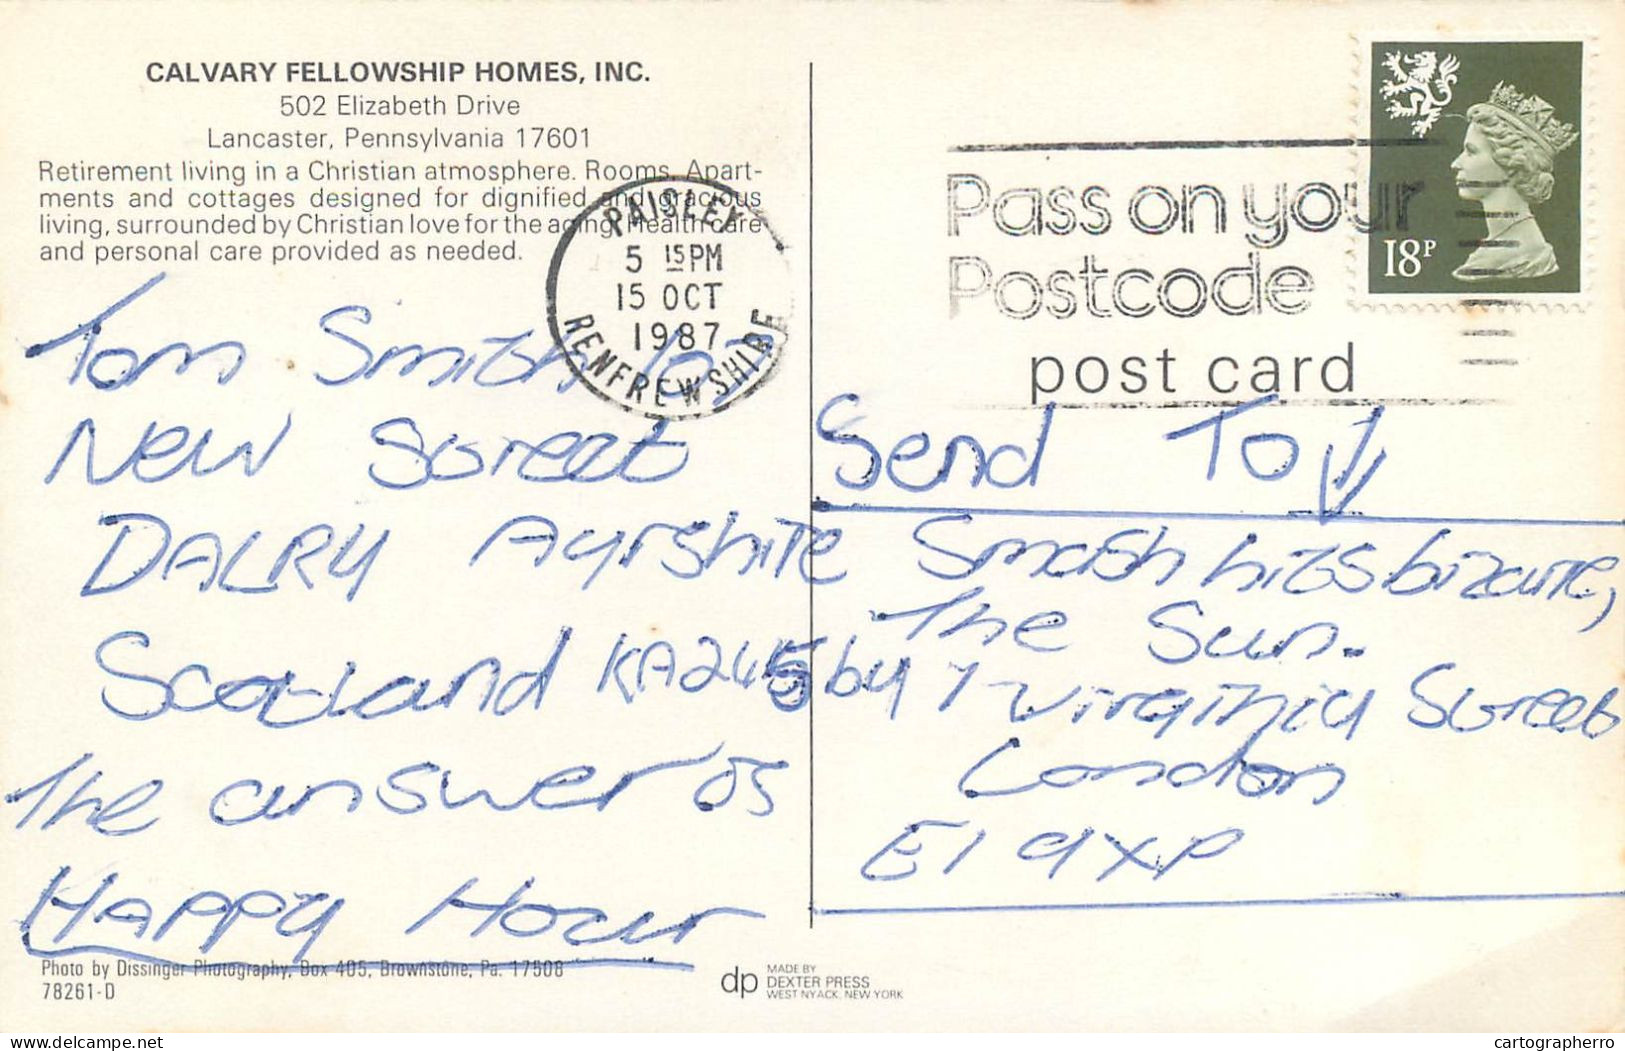 CALVARY FELLOWSHIP HOMES, INC.
502 Elizabeth Drive
Lancaster, Pennsylvania 17601
Retirement living in a Christian atmosphere. Rooms, Apart-
ments and cottages designed for dignified and gracious
living, surrounded by Christian love for the aging. Health care
and personal care provided as needed.
PAISLEY
5 15 PM
15 OCT
1987
RENFREWSHIRE
Pass on your
Postcode
18P
post card
Tom Smith
New Street
DALRY Ayrshire
Scotland KA24
The answer is
HAPPY Hour
Send To
Smash hits bizarre,
The Sun.
1 Virginia Street
London
E1 9XP
Photo by Dissinger Photography, Box 405, Brownstone, Pa. 17508
78261-D
dp
MADE BY
DEXTER PRESS
WEST NYACK, NEW YORK
Ajouté sur delcampe.net par
cartographerro